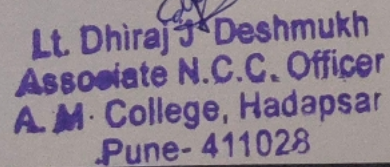 Lt. Dhiraj J Deshmukh
Associate N.C.C. Officer
A. M. College, Hadapsar
Pune- 411028